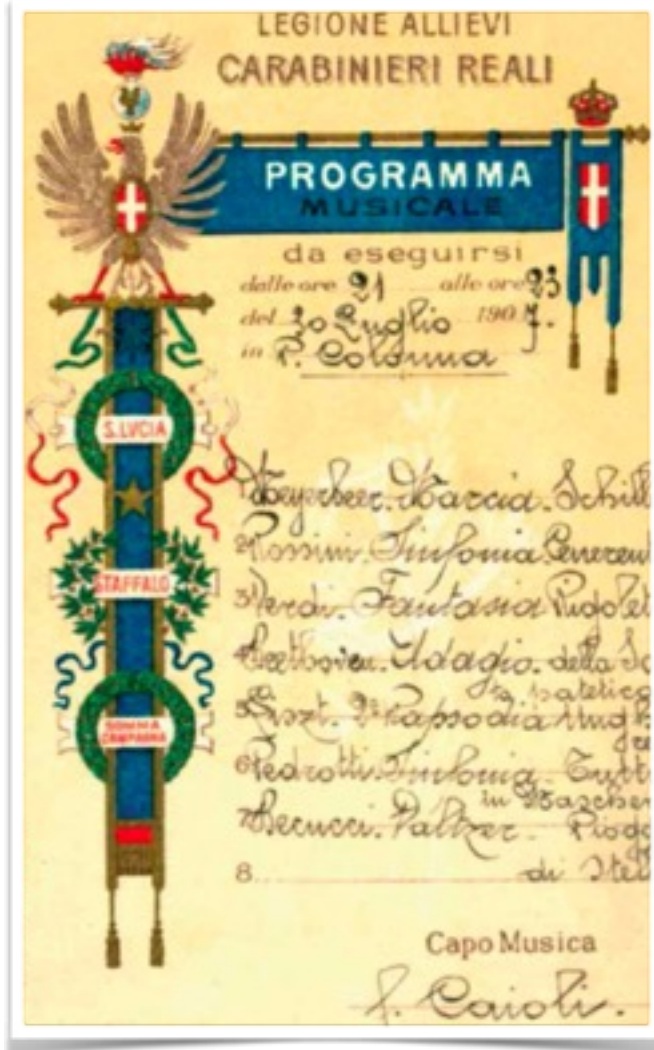 LEGIONE ALLIEVI
CARABINIERI REALI
PROGRAMMA
MUSICALE
da eseguirsi
dalle ore 21 alle ore 23
del 30 Luglio 1907.
in P. Colonna
S. LVCIA
STAFFALO
SOMMA
CAMPAGNA
1 Meyerbeer. Marcia. Schill
2 Rossini. Sinfonia Cenerent
3 Verdi. Fantasia Rigolet
4 Beethoven. Adagio. della So
patetica
5 Liszt. 2ª Rapsodia Ungh
6 Pedrotti. Sinfonia. Tutt
in Mascher
7 Becucci. Valtzer. Piog
8. di Stel
Capo Musica
L. Caioli.